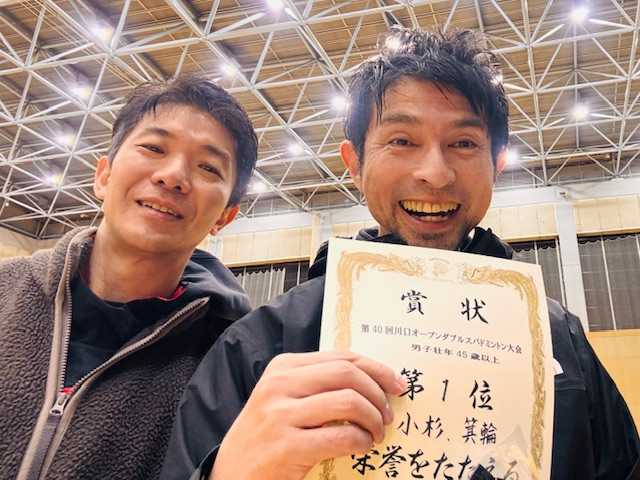 賞状
第40回川口オープンダブルスバドミントン大会
男子壮年45歳以上
第1位
小杉、箕輪
栄誉をたたえる